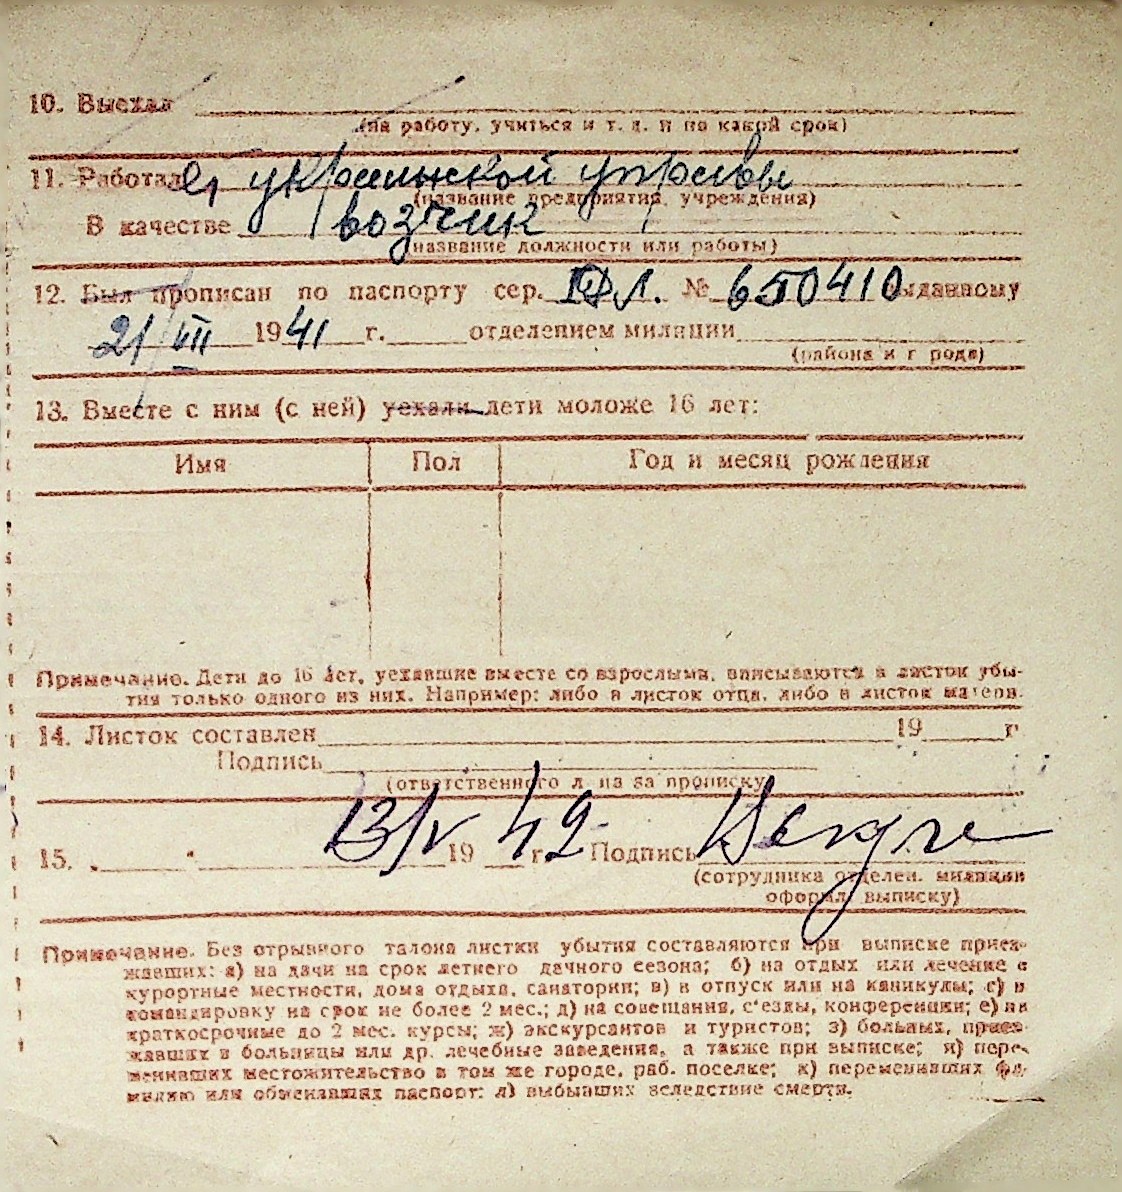 10. Выехал
(на работу, учиться и т. д. и на какой срок)
11. Работал украинской управы
(название предприятия, учреждения)
В качестве возчик
(название должности или работы)
12. Был прописан по паспорту сер. № 650410 выданному
21/VII 1941 г. отделением милиции
(района и г рода)
13. Вместе с ним (с ней) уехали дети моложе 16 лет:
Имя Пол Год и месяц рождения
Примечание. Дети до 16 лет, уехавшие вместе со взрослыми, вписываются в листок убы-
тия только одного из них. Например: либо в листок отца, либо в листок матери.
14. Листок составлен 19 г
Подпись
(ответственного л на за прописку)
15. 13/V 19 42 г. Подпись
(сотрудника отделен. милиции
оформл выписку)
Примечание. Без отрывного талона листки убытия составляются при выписке приез-
жавших: а) на дачи на срок летнего дачного сезона; б) на отдых или лечение в
курортные местности, дома отдыха, санатории; в) в отпуск или на каникулы; г) в
командировку на срок не более 2 мес.; д) на совещания, с'езды, конференции; е) на
краткосрочные до 2 мес. курсы; ж) экскурсантов и туристов; з) больных, приез-
жавших в больницы или др. лечебные заведения, а также при выписке; и) пере-
менивших местожительство в том же городе, раб. поселке; к) переменивших фа-
милию или обменявших паспорт; л) выбывших вследствие смерти.